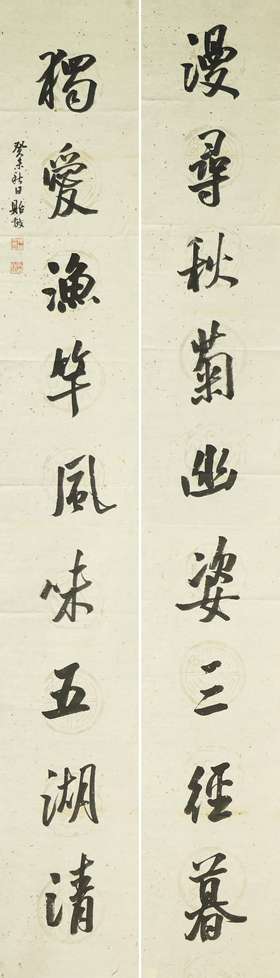 漫尋秋菊幽姿三徑暮
獨愛漁竿風味五湖清
癸未秋日 貽敬